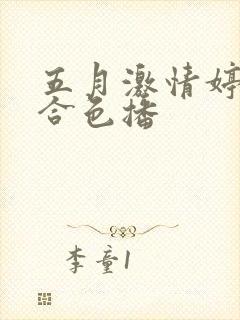 五月激情婷
合色播
李童1